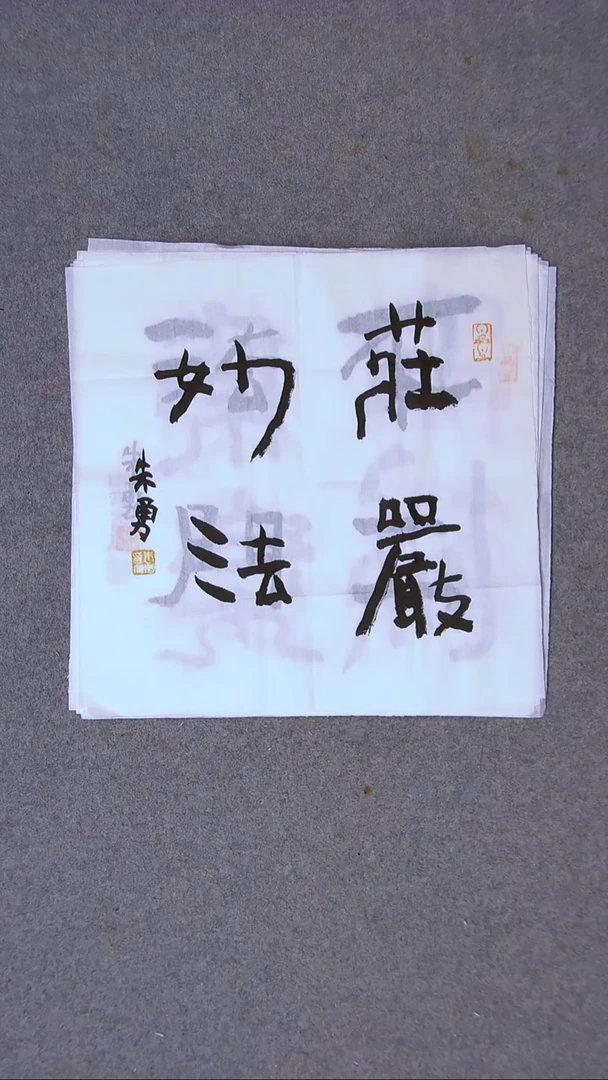 莊嚴
妙法
朱勇